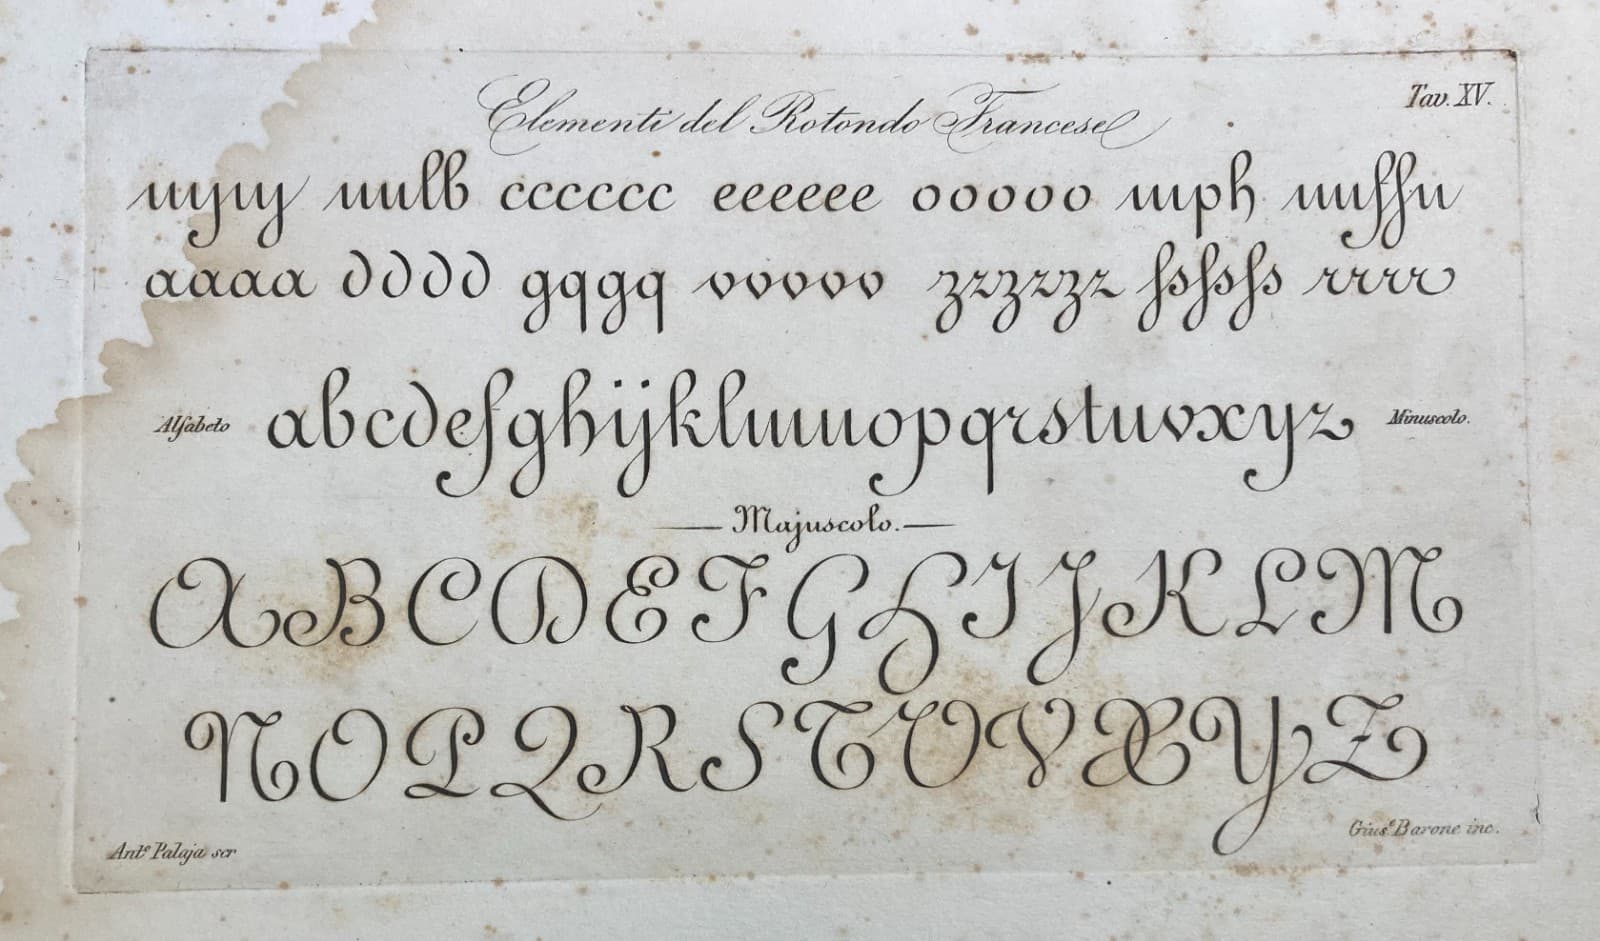 Tav. XV.
Elementi del Rotondo Francese
cccccc eeeeee ooooo
aaaa dddd gqgq vvvvv zzzzzz rrrr
Alfabeto abcdefghijklmnopqrstuvxyz Minuscolo.
Majuscolo.
A B C D E F G H I J K L M
N O P Q R S T U V X Y Z
Ant.º Palaja scr
Gius.e Barone inc.